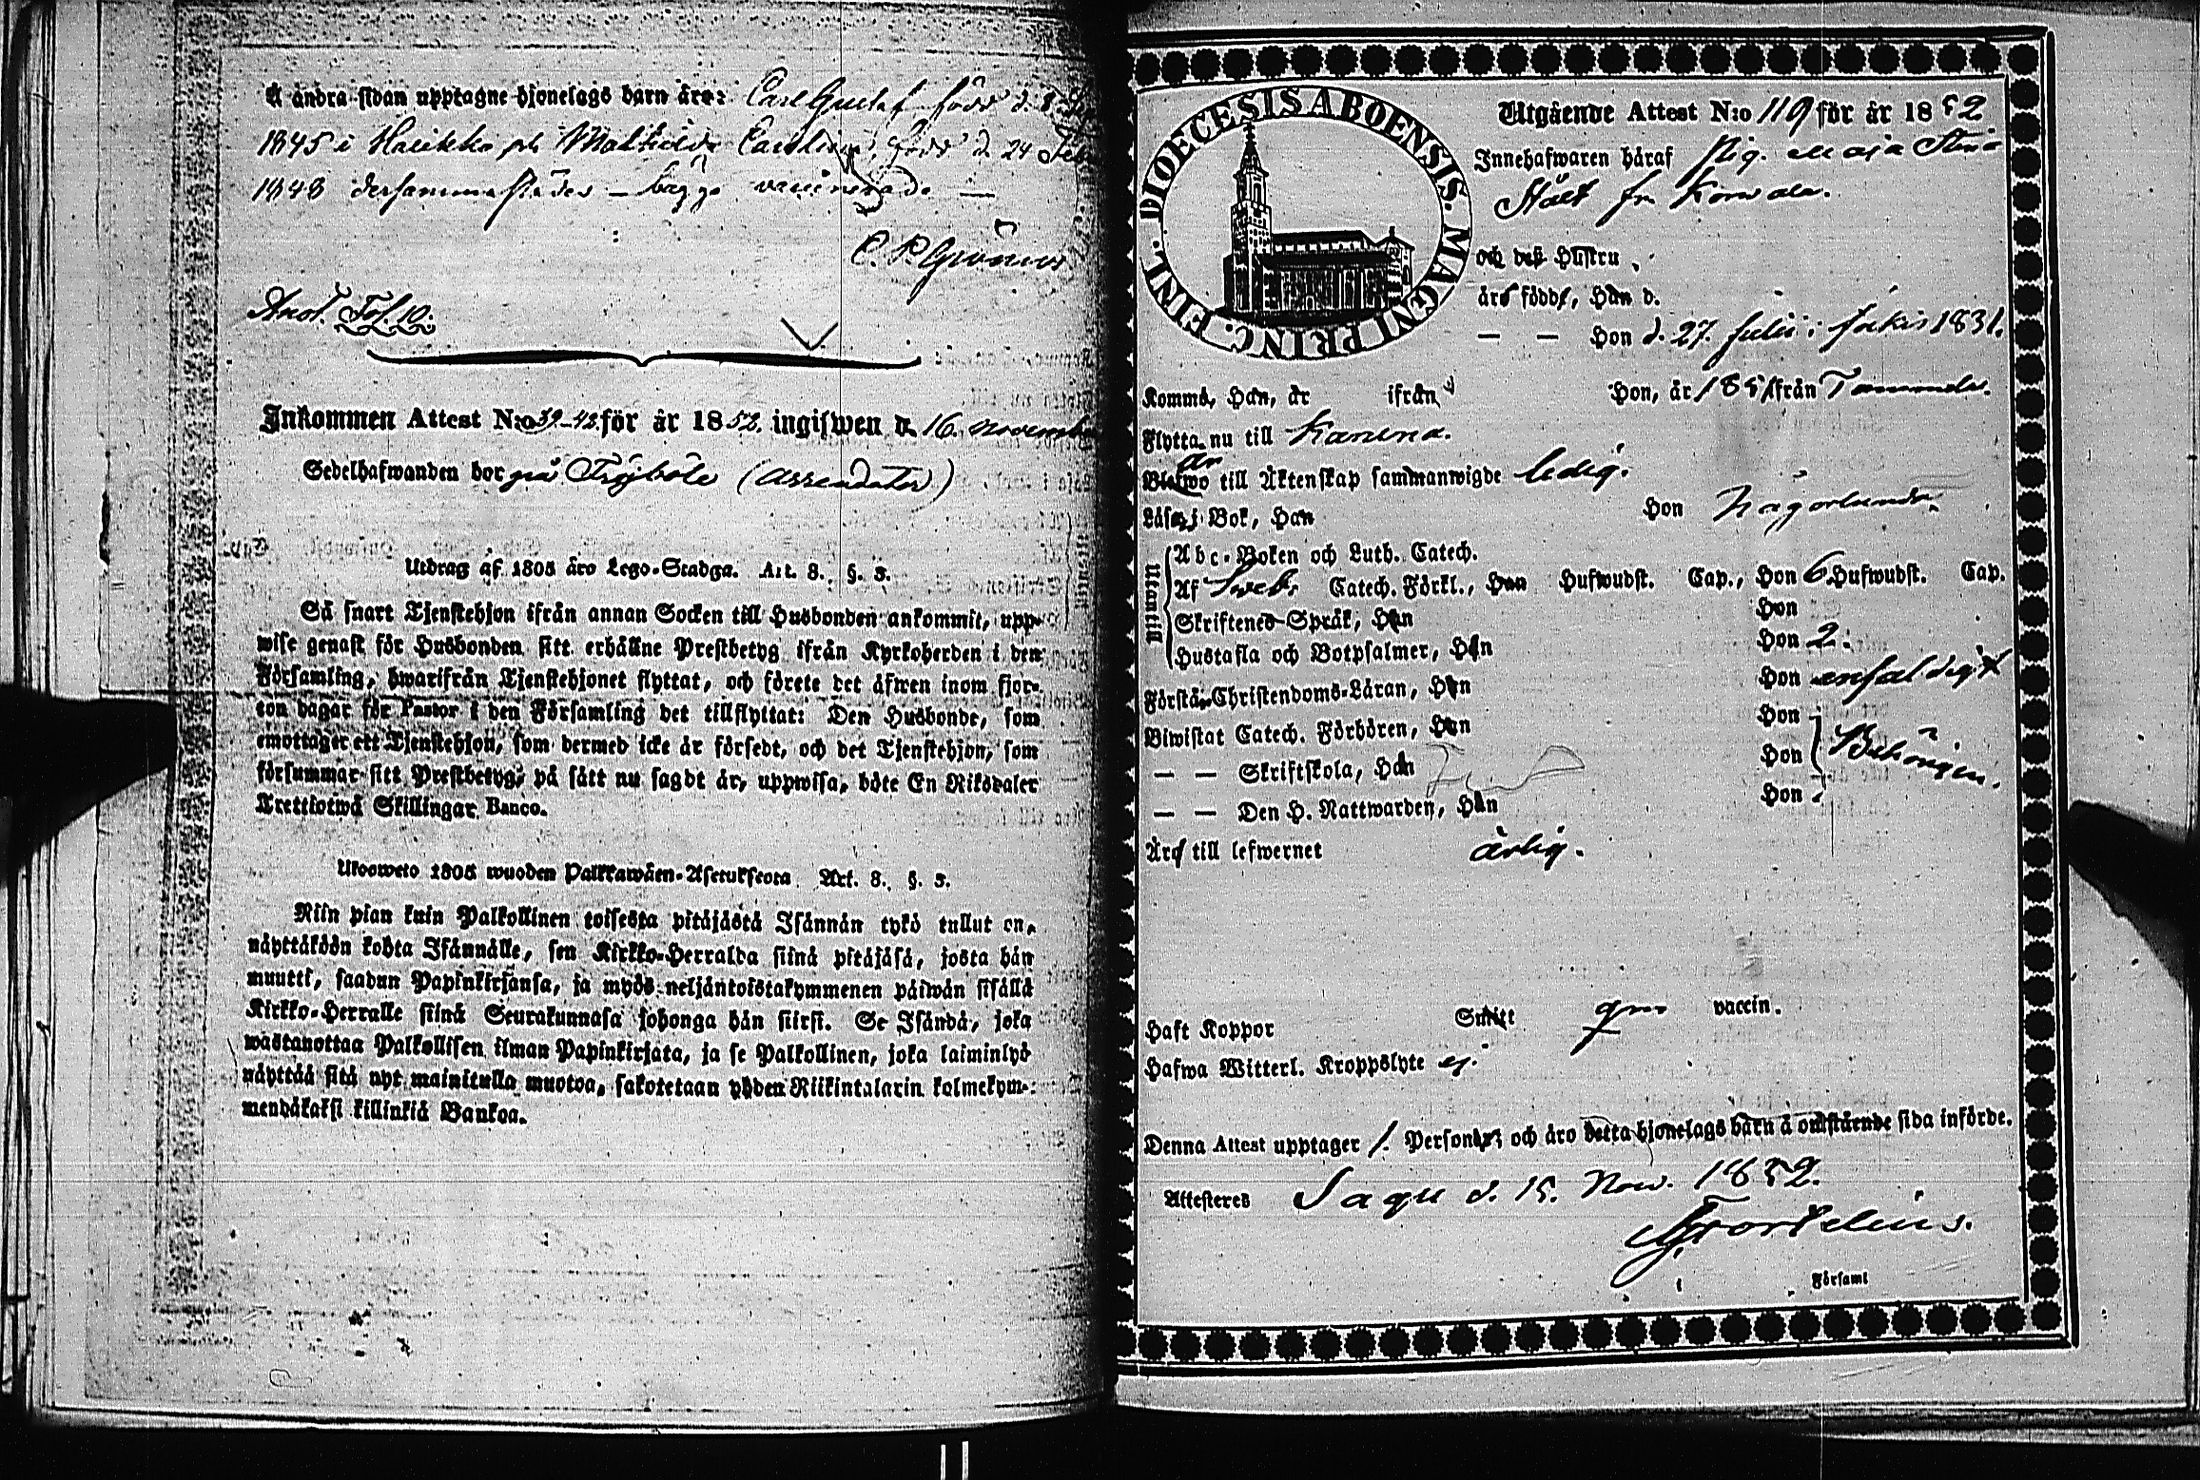 Å andra sidan upptagne hjonelags barn äro: Carl Gustaf född d. 8
1845 i Halikko och Mathilda Carolina, född d. 24 Feb
1848 dersammastädes – bägge vaccinerade –
C. P. Grönvos
Anot. Fol. 10.
Inkommen Attest N:o 39–42 för år 1852. ingifwen d. 16. november
Sedelhafwanden bor på Fröjböle (Arrendator)
Utdrag af 1805 års Lego-Stadga. Art. 8. §. 3.
Så snart Tjenstehjon ifrån annan Socken till Husbonden ankommit, upp-
wise genast för Husbonden sitt erhållne Prestbetyg ifrån Kyrkoherden i den
Församling, hwarifrån Tjenstehjonet flyttat, och förete det äfwen inom fjor-
ton dagar för Pastor i den Församling det tillflyttat: Den Husbonde, som
emottager ett Tjenstehjon, som dermed icke är försedt, och det Tjenstehjon, som
försummar sitt Prestbetyg, på sätt nu sagdt är, uppwisa, böte En Riksdaler
Trettiotwå Skillingar Banco.
Ulosweto 1805 wuoden Palkkawäen-Asetuksesta Art. 8. §. 3.
Niin pian kuin Palkollinen toisesta pitäjästä Isännän tykö tullut on,
näyttäköön kohta Isännälle, sen Kirkko-Herralda siinä pitäjäsä, josta hän
muutti, saadun Papinkirjansa, ja myös neljäntoistakymmenen päiwän sisällä
Kirkko-Herralle siinä Seurakunnasa johonga hän siirsi. Se Isändä, joka
wastanottaa Palkollisen ilman Papinkirjata, ja se Palkollinen, joka laiminlyö
näyttää sitä nyt mainitulla muotoa, sakotetaan yhden Riikintalarin kolmekym-
mendäkaksi killinkiä Bankoa.
DIOECESIS ABOENSIS. MAGNI PRINC. FINL.
Utgående Attest N:o 119 för år 1852
Innehafwaren häraf Pig. Maja Stina
Stålt fr. Korvola.
och deß Hustru
äro födde, Han d.
— — Hon d. 27. Julii i Jokis 1831.
Komme, Han, år ifrån Hon, år 1851 från Tammela.
Flytta nu till Karuna.
Blefwo är till Äktenskap sammanwigde ledig.
Läser i Bok, Han Hon någorlunda.
Utantill
Abc-Boken och Luth. Catech.
Af Sweb. Catech. Förkl., Han Hufwudst. Cap., Hon 6 Hufwudst. Cap.
Skriftenes Språk, Han Hon
Hustafla och Botpsalmer, Han Hon 2.
Förstå Christendoms-Läran, Han Hon enfaldigt
Biwistat Catech. Förhören, Han Hon
— — Skriftskola, Han Hon Behörigen.
— — Den H. Nattwarden, Han Hon
Äro till lefwernet ärlig.
Haft Koppor Smitt gm vaccin.
Hafwa Witterl. Kroppslyte ej.
Denna Attest upptager 1. Personer; och äro detta hjonelags barn å omstående sida införde.
Attesteres Sagu d. 15. Nov. 1852.
Fortelius.
Församl